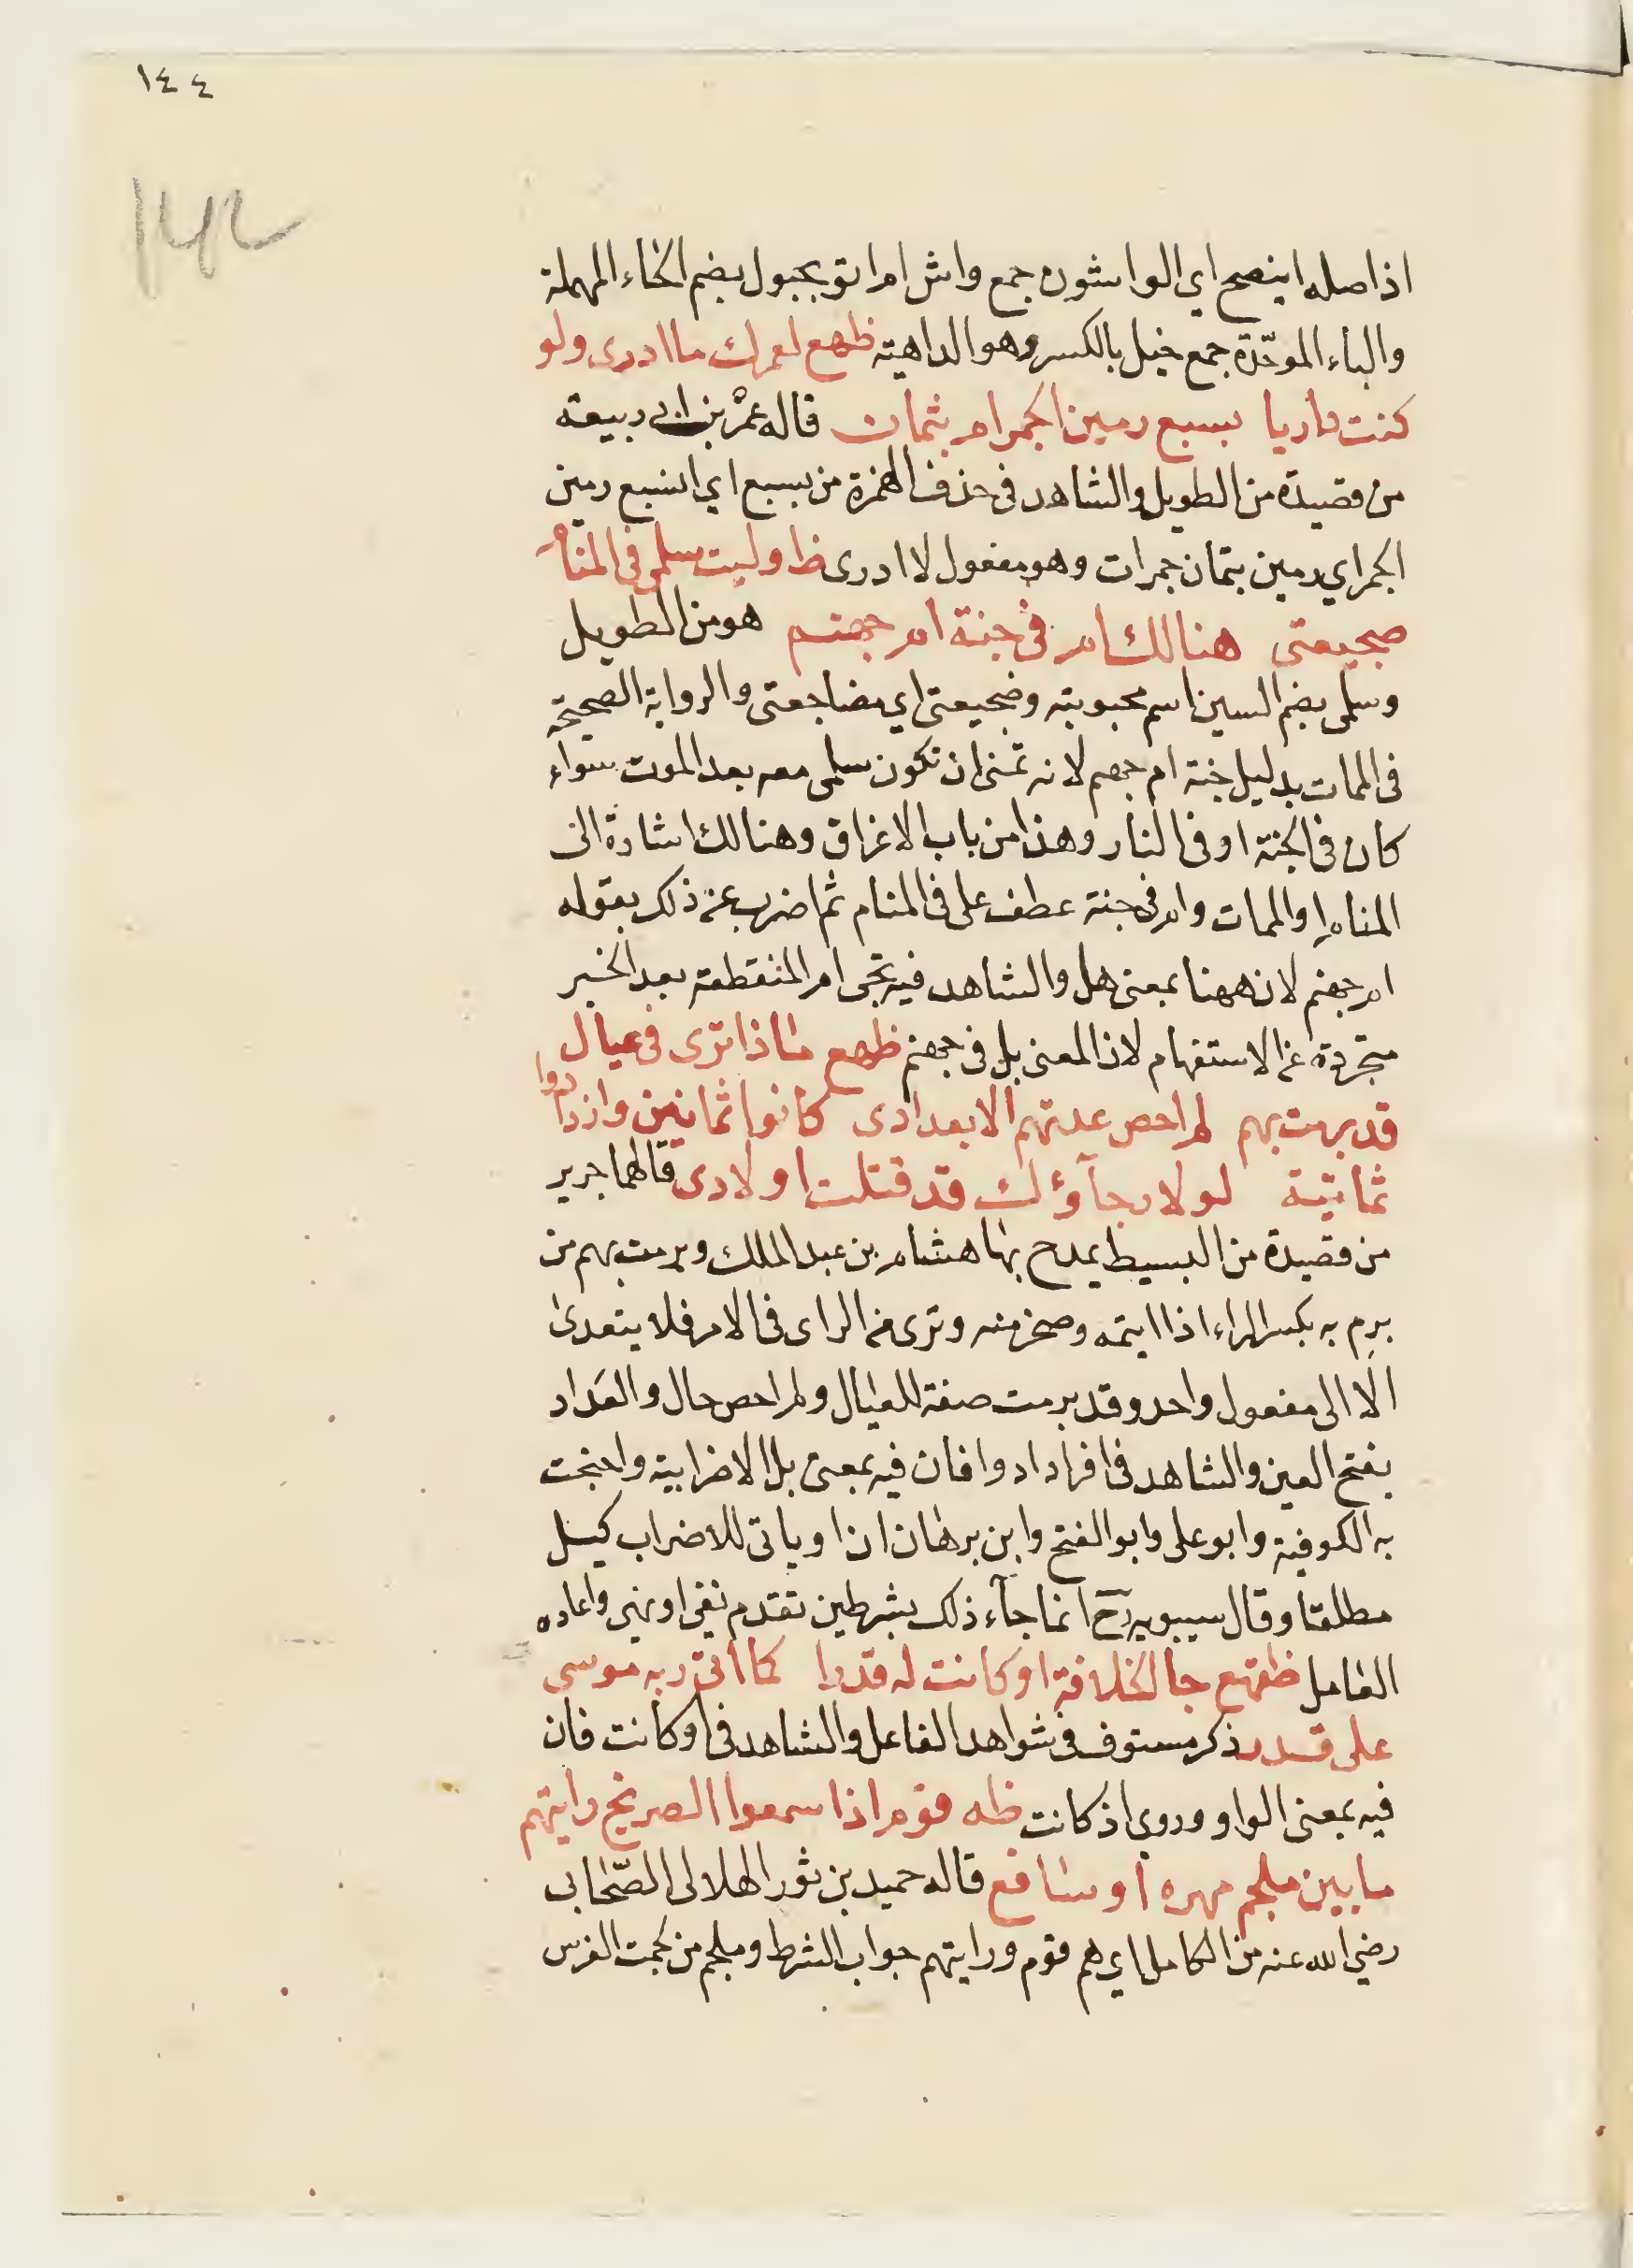 ١٤٤
١٤٢
اذا صله اينصح اي الواشون جمع واش ام اتو بجبول بضم الحاء المهملة
والباء الموحّدة جمع خبل بالكسر وهو الداهية ظهع لعمرك ما ادرى ولو
كنت داريا بسبع رمين الجمر ام بثمان قاله عمر بن ابي ربيعة
من قصيدة من الطويل والشاهد فى حذف الهمزة من بسبع اي ابسبع رمين
الجمر اي رمين بثمان جمرات وهو مفعول لا ادرى ظا وليت سلمى فى المنام
ضجيعتى هنالك ام فى جنة ام جهنم هو من الطويل
وسلمى بضم السين اسم محبوبته وضجيعتى اي مضاجعتى والرواية الصحيحة
فى الممات بدليل جنة ام جهنم لانه تمنى ان تكون سلمى معه بعد الموت سواء
كان فى الجنة او فى النار وهذا من باب الاغراق وهنالك اشارة الى
المنام او الممات وام فى جنة عطف على فى المنام ثم اضرب عن ذلك بقوله
ام جهنم لان ههنا بمعنى هل والشاهد فيه تجى ام المنقطعة بعد الخبر
متجردة عن الاستفهام لان المعنى بل فى جهنم ظهع ماذا ترى فى عيال
قد برمت بهم لم احص عدتهم الا بعدادى كانوا ثمانين وازدادوا
ثمانية لولا رجآؤك قد قتلت اولادى قالهما جرير
من قصيدة من البسيط يمدح بها هشام بن عبد الملك وبرمت بهم من
برم به بكسر الراء اذا ايتمه وضجر منه وترى من الراى فى الامر فلا يتعدى
الا الى مفعول واحد وقد برمت صفة للعيال ولم احص حال والعَداد
بفتح العين والشاهد فى افراد ادوا فان فيه بمعنى بل الاضرابية واحتجت
به الكوفية وابو على وابو الفتح وابن برهان ان او ياتى للاضراب كبل
مطلقا وقال سيبويه رح انما جآء ذلك بشرطين تقدم نفى او نهى واعاده
العامل ظفهع جا الخلافة او كانت له قدرا كما اتى ربه موسى
على قدر ذكر مستوف فى شواهد الفاعل والشاهد فى او كانت فان
فيه بمعنى الواو وروى اذ كانت ظه قوم اذا سمعوا الصريخ رايتهم
ما بين ملجم مهره او سافع قاله حميد بن ثور الهلالى الصّحابى
رضي الله عنه من الكامل اي هم قوم ورايتهم جواب الشرط وملجم من لجمت الفرس